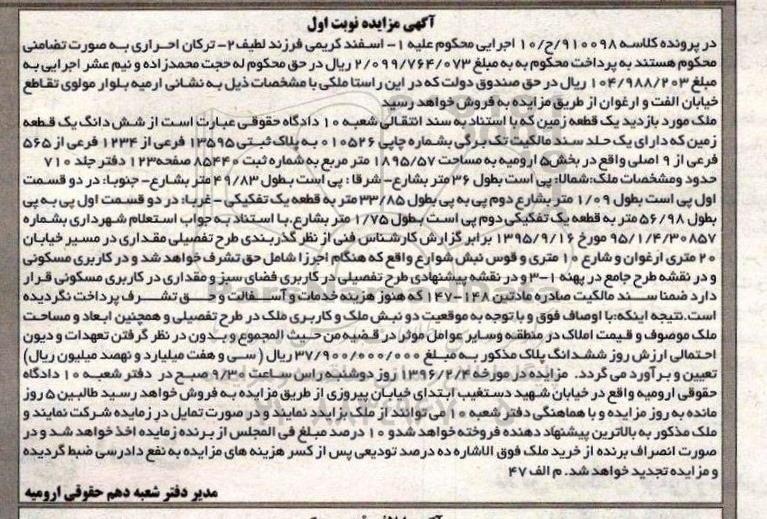 آگهی مزایده نوبت اول
در پرونده کلاسه ۹۱۰۰۹۸/ح/۱۰ اجرایی محکوم علیه ۱- اسفند کریمی فرزند لطیف ۲- ترکان احراری به صورت تضامنی
محکوم هستند به پرداخت محکوم به به مبلغ ۲/۰۹۹/۷۶۴/۰۷۳ ریال در حق محکوم له حجت محمدزاده و نیم عشر اجرایی به
مبلغ ۱۰۴/۹۸۸/۲۰۳ ریال در حق صندوق دولت که در این راستا ملکی با مشخصات ذیل به نشانی ارمیه بلوار مولوی تقاطع
خیابان الفت و ارغوان از طریق مزایده به فروش خواهد رسید
ملک مورد بازدید یک قطعه زمین که با استناد به سند انتقالی شعبه ۱۰ دادگاه حقوقی عبارت است از شش دانگ یک قطعه
زمین که دارای یک جلد سند مالکیت تک برگی بشماره چاپی ۰۱۰۵۲۶ به پلاک ثبتی ۱۳۵۹۵ فرعی از ۱۲۳۴ فرعی از ۵۶۵
فرعی از ۹ اصلی واقع در بخش ۵ ارومیه به مساحت ۱۸۹۵/۵۷ متر مربع به شماره ثبت ۸۵۴۴۰ صفحه ۱۲۳ دفتر جلد ۷۱۰
حدود ومشخصات ملک:شمالا: پی است بطول ۳۶ متر بشارع- شرقا : پی است بطول ۴۹/۸۳ متر بشارع- جنوبا: در دو قسمت
اول پی است بطول ۱/۰۹ متر بشارع دوم پی به پی بطول ۳۳/۸۵ متر به قطعه یک تفکیکی - غربا: در دو قسمت اول پی به پی
بطول ۵۶/۹۸ متر به قطعه یک تفکیکی دوم پی است بطول ۱/۷۵ متر بشارع.با استناد به جواب استعلام شهرداری بشماره
۹۵/۱/۴/۳۰۸۵۷ مورخ ۱۳۹۵/۹/۱۶ برابر گزارش کارشناس فنی از نظر گذربندی طرح تفصیلی مقداری در مسیر خیابان
۲۰ متری ارغوان و شارع ۱۰ متری و قوس نبش شوارع واقع که هنگام اجرزا شامل حق تشرف خواهد شد و در کاربری مسکونی
و در نقشه طرح جامع در پهنه ۱-۳ و در نقشه پیشنهادی طرح تفصیلی در کاربری فضای سبز و مقداری در کاربری مسکونی قرار
دارد ضمنا سند مالکیت صادره مادتین ۱۴۸-۱۴۷ که هنوز هزینه خدمات و آسفالت و حق تشرف پرداخت نگردیده
است.نتیجه اینکه:با اوصاف فوق و با توجه به موقعیت دو نبش ملک و کاربری ملک در طرح تفصیلی و همچنین ابعاد و مساحت
ملک موصوف و قیمت املاک در منطقه وسایر عوامل موثر در قضیه من حیث المجموع و بدون در نظر گرفتن تعهدات و دیون
احتمالی ارزش روز ششدانگ پلاک مذکور به مبلغ ۳۷/۹۰۰/۰۰۰/۰۰۰ ریال (سی و هفت میلیارد و نهصد میلیون ریال)
تعیین و برآورد می گردد. مزایده در مورخه ۱۳۹۶/۲/۴ روز دوشنبه راس ساعت ۹/۳۰ صبح در دفتر شعبه ۱۰ دادگاه
حقوقی ارومیه واقع در خیابان شهید دستغیب ابتدای خیابان پیروزی از طریق مزایده به فروش خواهد رسید طالبین ۵ روز
مانده به روز مزایده و با هماهنگی دفتر شعبه ۱۰ می توانند از ملک بزایدد نمایند و در صورت تمایل در زمایده شرکت نمایند و
ملک مذکور به بالاترین پیشنهاد دهنده فروخته خواهد شدو ۱۰ درصد مبلغ فی المجلس از برنده زمایده اخذ خواهد شد و در
صورت انصراف برنده از خرید ملک فوق الاشاره ده درصد تودیعی پس از کسر هزینه های مزایده به نفع دادرسی ضبط گردیده
و مزایده تجدید خواهد شد. م الف ۴۷
مدیر دفتر شعبه دهم حقوقی ارومیه